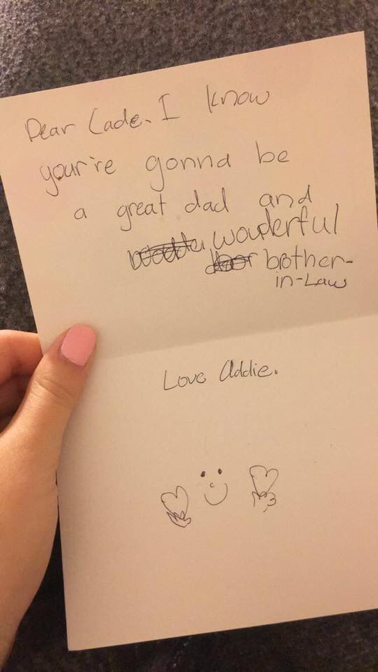 Dear Cade. I know
your're gonna be
a great dad and
wonderful
brother-
in-Law
Love Addie.